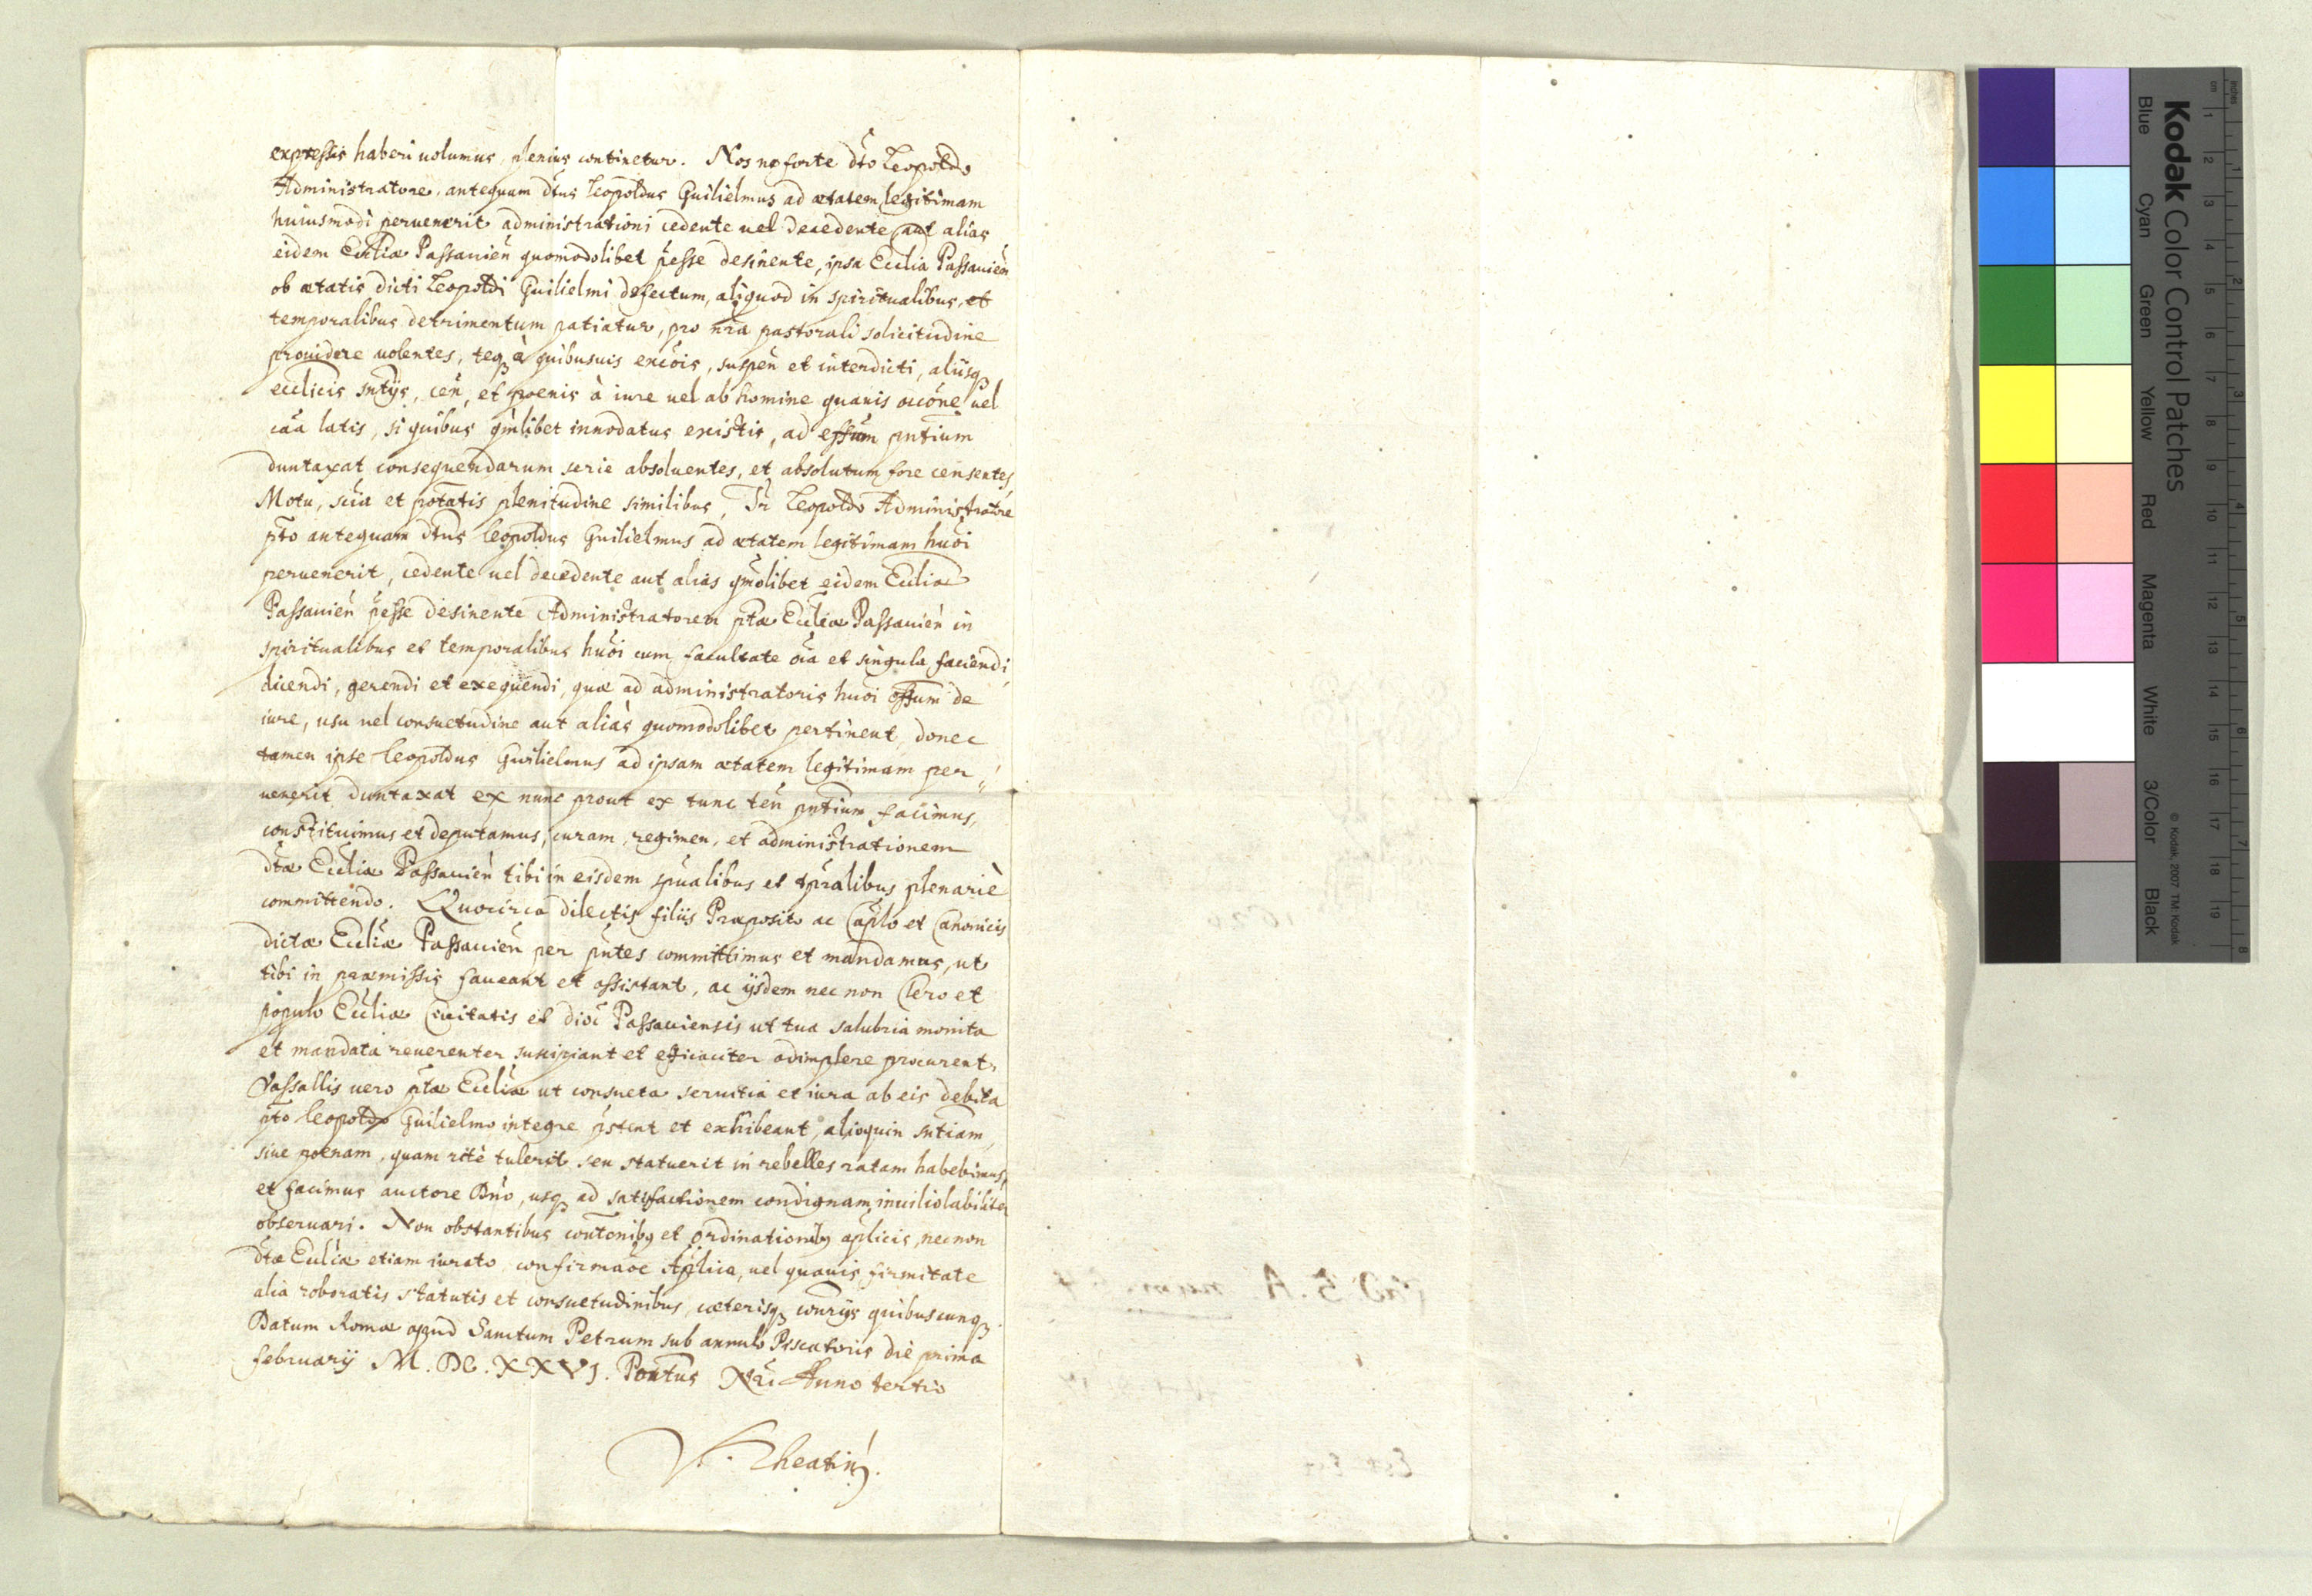 expressis haberi uolumus, plenius continetur. Nos ne forte dto Leopoldo
Administratore, antequam dtus Leopoldus Guilielmus ad ætatem legitimam
huiusmodi peruenerit administrationi cedente uel decedente, aut alias
eidem Eccliæ Passauien̄ quomodolibet p̄esse desinente, ipsa Ecclia Passauien̄
ob ætatis dicti Leopoldi Guilielmi defectum, aliquod in spiritualibus, et
temporalibus detrimentum patiatur, pro nr̄a pastorali solicitudine
prouidere uolentes, teq₃ à quibusuis excōis, suspen̄ et interdicti, aliisq₃
ecclicis sntijs, cen̄, et poenis à iure uel ab homine quauis occōne uel
cāa latis, si quibus qm̄libet innodatus existis, ad eff̄um pn̄tium
duntaxat consequendarum serie absoluentes, et absolutum fore censentes,
Motu, sciā et potātis plenitudine similibus, Te Leopoldo Administratore
pt̄o antequam dtus Leopoldus Guilielmus ad ætatem legitimam huōi
peruenerit, cedente uel decedente aut alias qm̄olibet eidem Eccliæ
Passauien̄ p̄esse desinente Administratorem ptæ Eccliæ Passauien̄ in
spiritualibus et temporalibus huōi cum facultate oīa et singula faciendi,
dicendi, gerendi et exequendi, quæ ad administratoris huōi off̄um de
iure, usu uel consuetudine aut aliàs quomodolibet pertinent, donec
tamen ipse Leopoldus Guilielmus ad ipsam ætatem legitimam per„
uenerit duntaxat ex nunc prout ex tunc ten̄ pn̄tium facimus,
constituimus et deputamus, curam, regimen, et administrationem
dtæ Eccliæ Passauien̄ tibi in eisdem spūalibus et tp̄ralibus plenariè
committendo. Quocirca dilectis filiis Præposito ac Cap̄lo et Canonicis
dictæ Eccliæ Passauien̄ per pn̄tes committimus et mandamus, ut
tibi in præmissis faueant et assistant, ac ijsdem nec non Clero et
populo Eccliæ Ciuitatis et dioc̄ Passauiensis ut tua salubria monita
et mandata reuerenter suscipiant et efficaciter adimplere procurent,
Vassallis uero ptæ Eccliæ ut consueta seruitia et iura ab eis debita
pt̄o Leopoldo Guilielmo integre p̄stent et exhibeant, alioquin sntiam,
siue poenam, quam ritè tulerit seu statuerit in rebelles ratam habebimus,
et faciemus auctore Dn̄o, usq₃ ad satisfactionem condignam inuiliolabiliter
obseruari. Non obstantibus con̄tonibq₃ et ordinationibq₃ aplicis, necnon
dtæ Eccliæ etiam iurato confirmaōe Aplica, uel quauis firmitate
alia roboratis statutis et consuetudinibus, cæterisq₃ con̄rijs quibuscunq₃.
Datum Romæ apud Sanctum Petrum sub annulo Piscatoris die prima
februarij M.DC.XXVI. Pontus Nr̄i Anno tertio
V. Theatin₉.